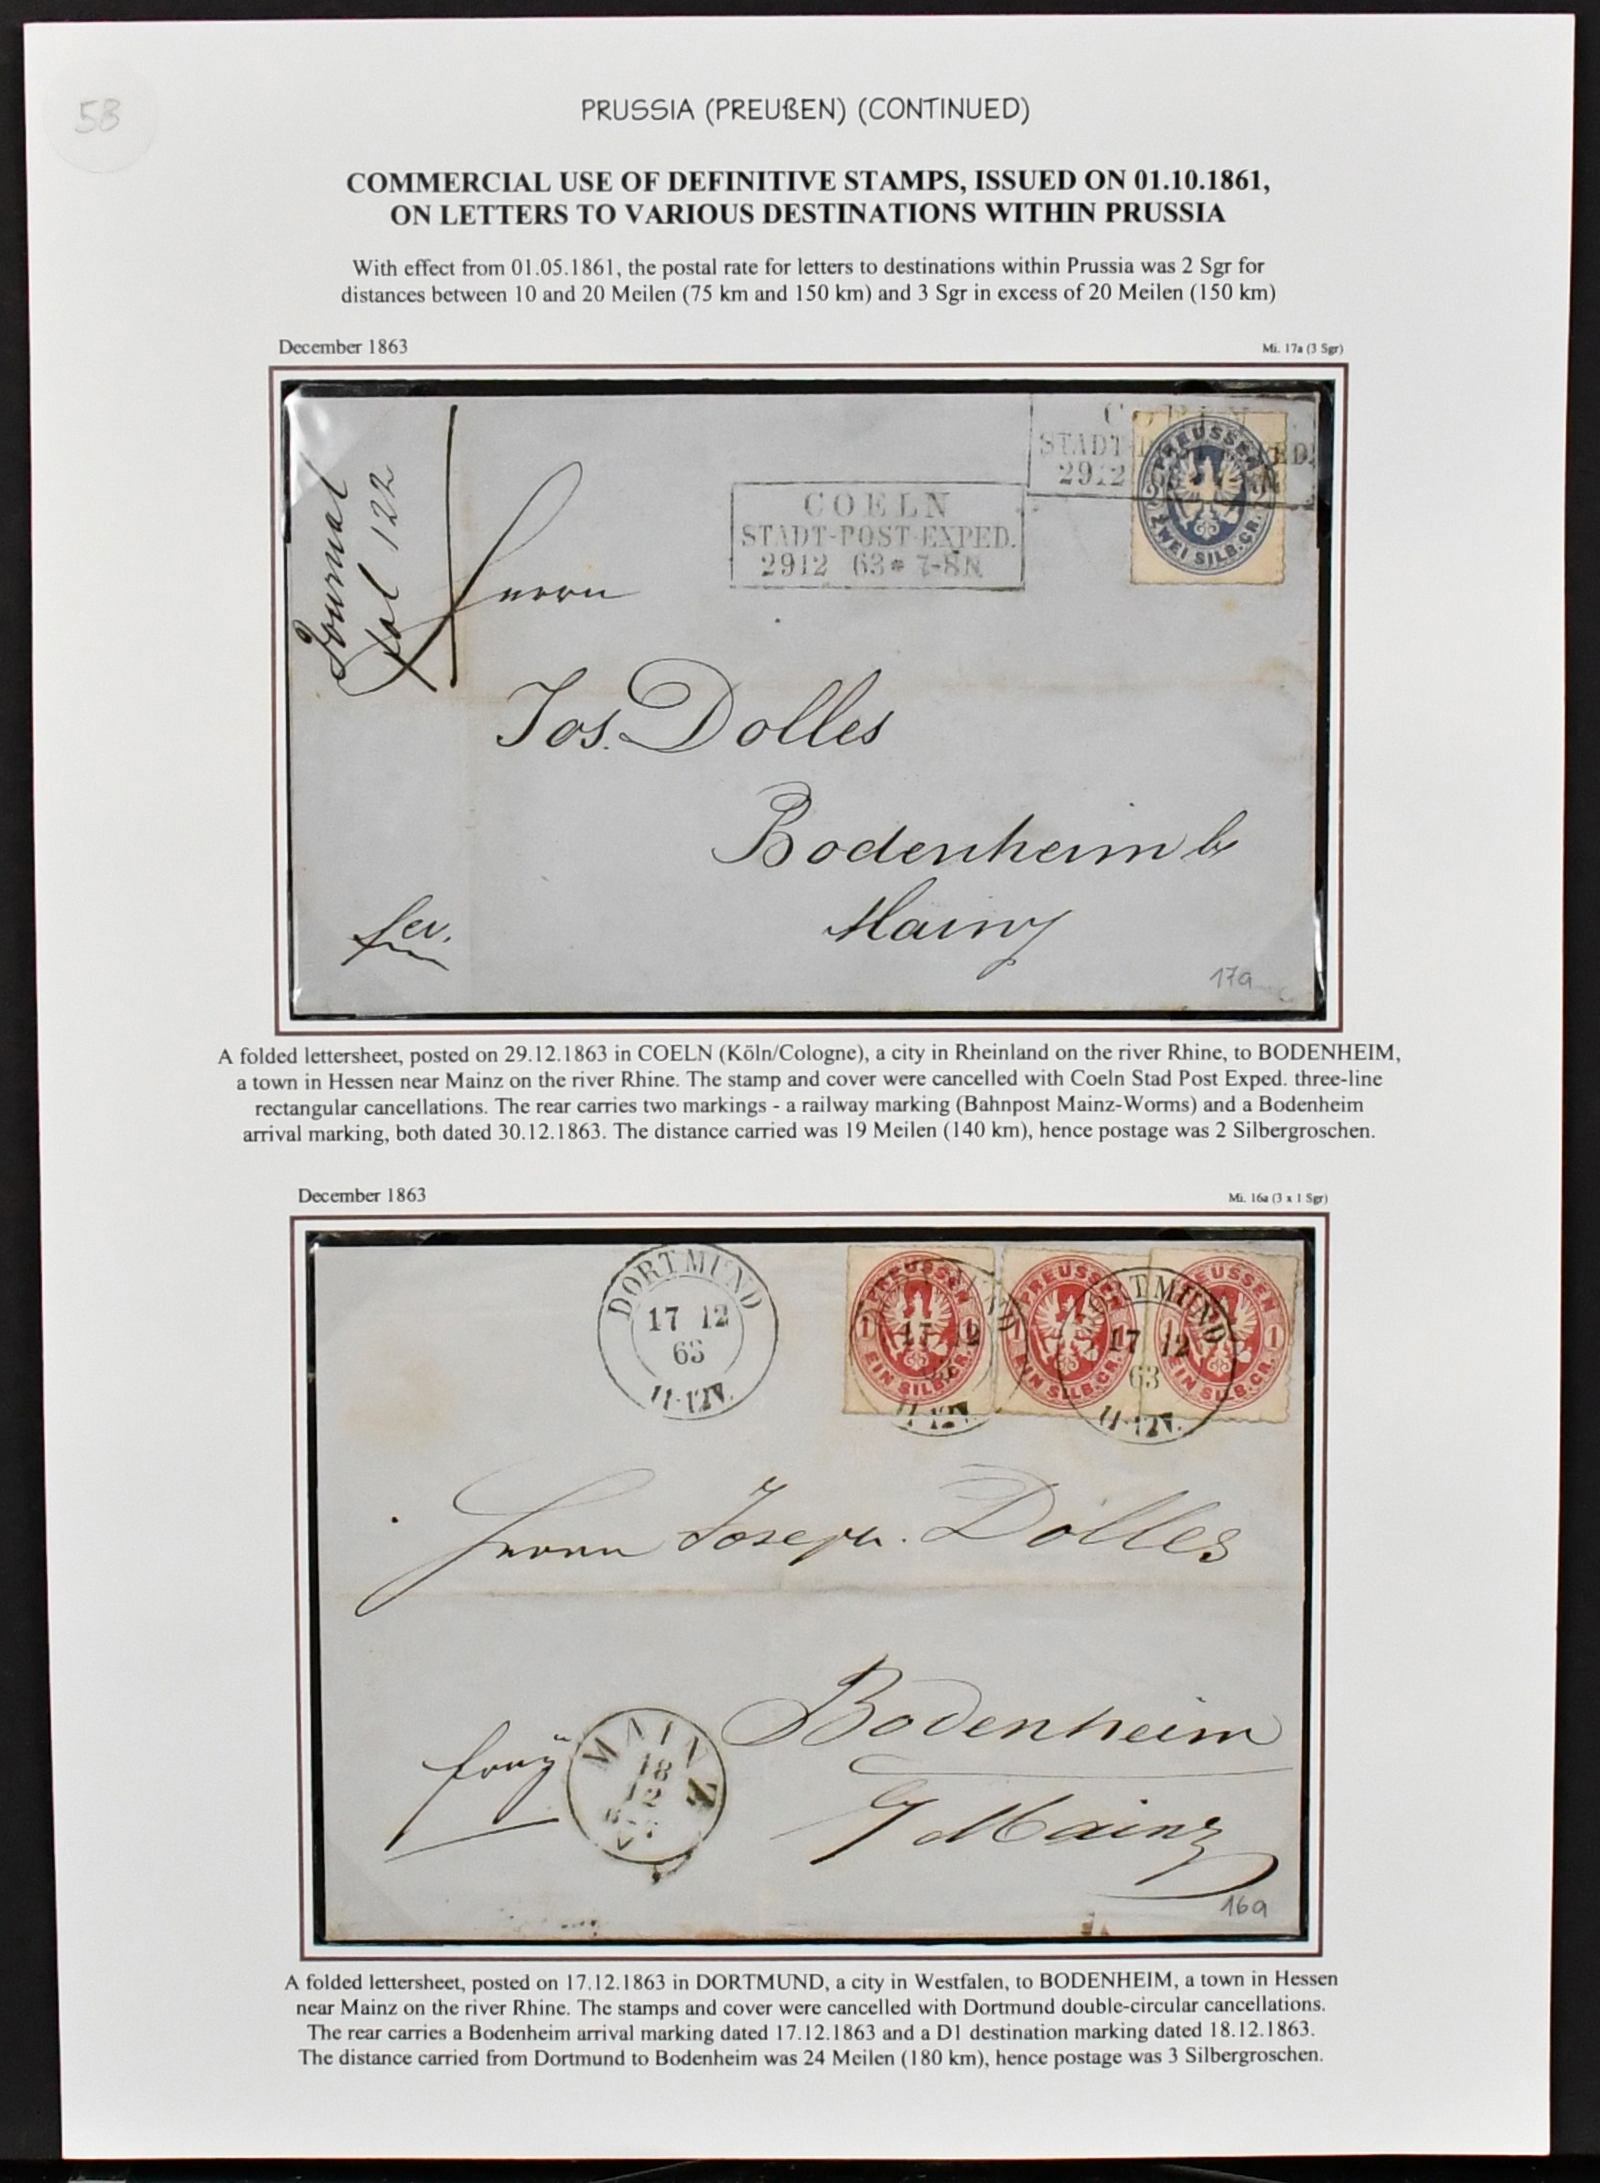 58
PRUSSIA (PREUßEN) (CONTINUED)
COMMERCIAL USE OF DEFINITIVE STAMPS, ISSUED ON 01.10.1861,
ON LETTERS TO VARIOUS DESTINATIONS WITHIN PRUSSIA
With effect from 01.05.1861, the postal rate for letters to destinations within Prussia was 2 Sgr for
distances between 10 and 20 Meilen (75 km and 150 km) and 3 Sgr in excess of 20 Meilen (150 km)
December 1863
Mi. 17a (3 Sgr)
Journal
fol 122
COELN
STADT-POST-EXPED.
2912 63 * 7-8N
COELN
STADT
2912
PREUSSEN
2
ZWEI SILB.GR.
Herrn
Jos. Dolles
Bodenheim b/
Mainz
17a
A folded lettersheet, posted on 29.12.1863 in COELN (Köln/Cologne), a city in Rheinland on the river Rhine, to BODENHEIM,
a town in Hessen near Mainz on the river Rhine. The stamp and cover were cancelled with Coeln Stad Post Exped. three-line
rectangular cancellations. The rear carries two markings - a railway marking (Bahnpost Mainz-Worms) and a Bodenheim
arrival marking, both dated 30.12.1863. The distance carried was 19 Meilen (140 km), hence postage was 2 Silbergroschen.
December 1863
Mi. 16a (3 x 1 Sgr)
DORTMUND
17 12
63
11-12N.
PREUSSEN
1
EIN SILB.GR.
17 12
11-12N.
PREUSSEN
1
EIN SILB.GR.
DORTMUND
17 12
63
11-12N.
PREUSSEN
1 1
EIN SILB.GR.
Herrn Joseph. Dolles
Bodenheim
b/ Mainz
MAINZ
18
12
16a
A folded lettersheet, posted on 17.12.1863 in DORTMUND, a city in Westfalen, to BODENHEIM, a town in Hessen
near Mainz on the river Rhine. The stamps and cover were cancelled with Dortmund double-circular cancellations.
The rear carries a Bodenheim arrival marking dated 17.12.1863 and a D1 destination marking dated 18.12.1863.
The distance carried from Dortmund to Bodenheim was 24 Meilen (180 km), hence postage was 3 Silbergroschen.